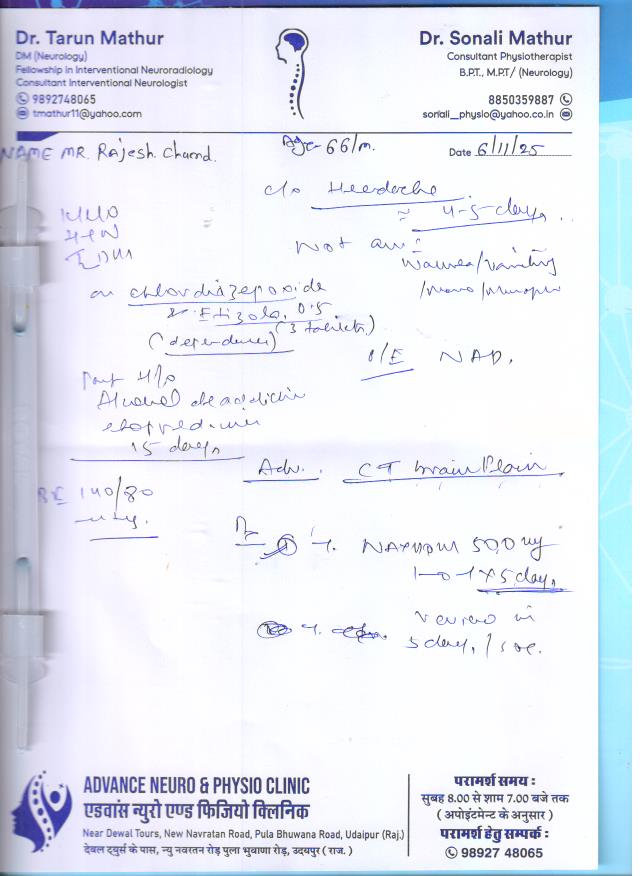 Dr. Tarun Mathur
DM (Neurology)
Fellowship in Interventional Neuroradiology
Consultant Interventional Neurologist
9892748065
tmathur11@yahoo.com
Dr. Sonali Mathur
Consultant Physiotherapist
B.P.T., M.P.T/ (Neurology)
8850359887
sonali_physio@yahoo.co.in
NAME MR. Rajesh Chand.
Age- 66/m.
Date 6/11/25
c/o Headache
≈ 4-5 days.
K/C/O
HTN
T2DM
Not
Nausea/Vomiting
on chlordiazepoxide
& Etizola 0.5
(3 tablets.)
(dependence)
O/E NAD.
Past H/o
Alcohol deaddiction
stopped
15 days
Adv. CT brain Plain
140/80
Rx
① T. 500 mg
1-0-1 x 5 days
T.
review in
5 days / SOS.
ADVANCE NEURO & PHYSIO CLINIC
एडवांस न्युरो एण्ड फिजियो क्लिनिक
Near Dewal Tours, New Navratan Road, Pula Bhuwana Road, Udaipur (Raj.)
देवल ट्युर्स के पास, न्यु नवरतन रोड़ पुला भुवाणा रोड़, उदयपुर ( राज. )
परामर्श समय :
सुबह 8.00 से शाम 7.00 बजे तक
( अपोइंटमेन्ट के अनुसार )
परामर्श हेतु सम्पर्क :
98927 48065